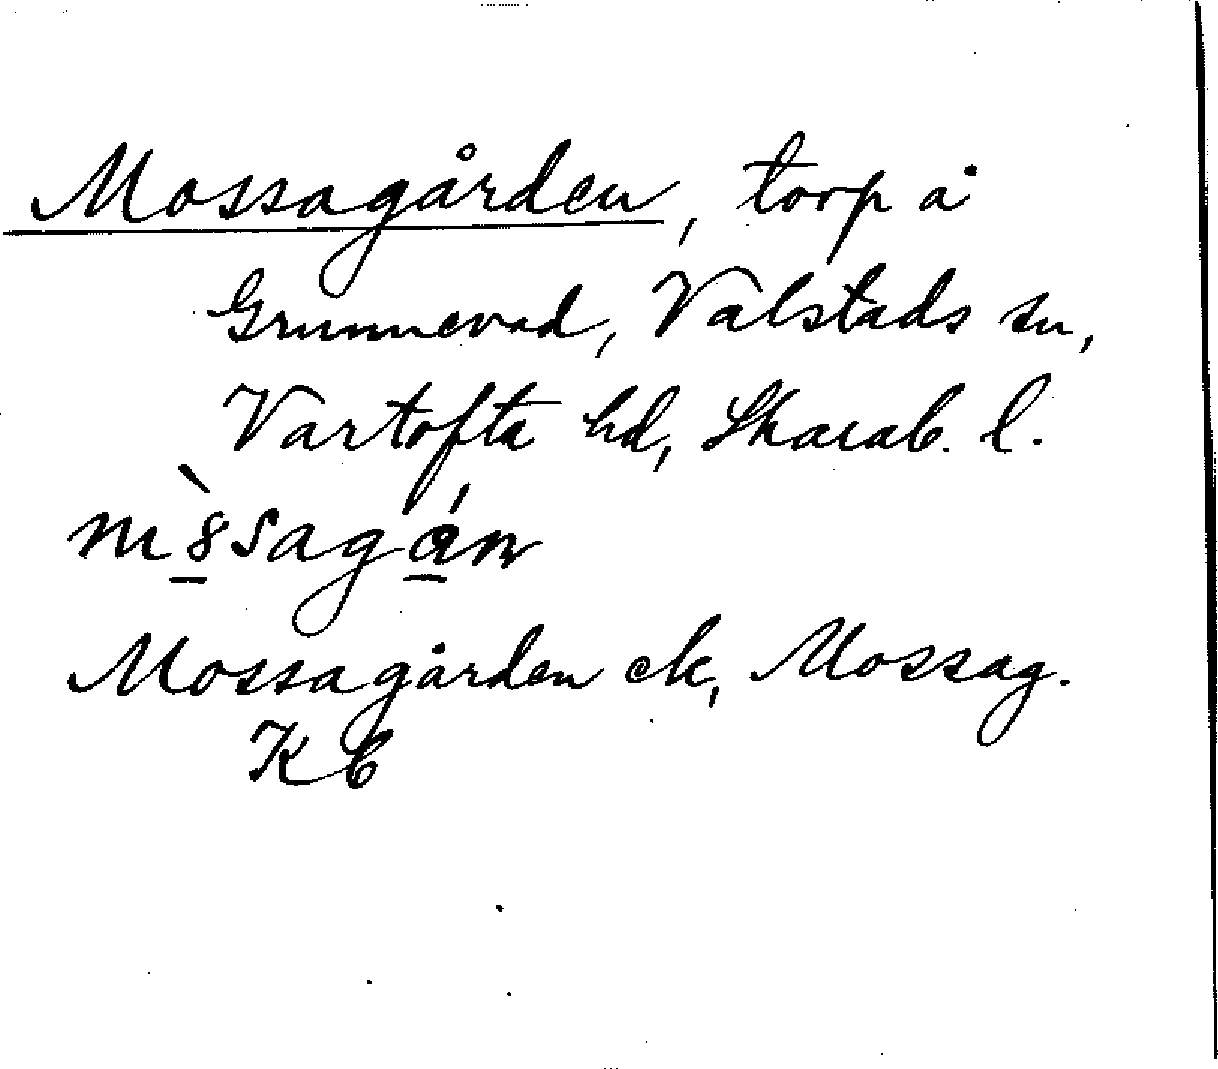 Mossagården, torp å
Grunnevad, Valstads sn,
Vartofta hd, Skarab. l.
Mossagården ek, Mossag.
Kb